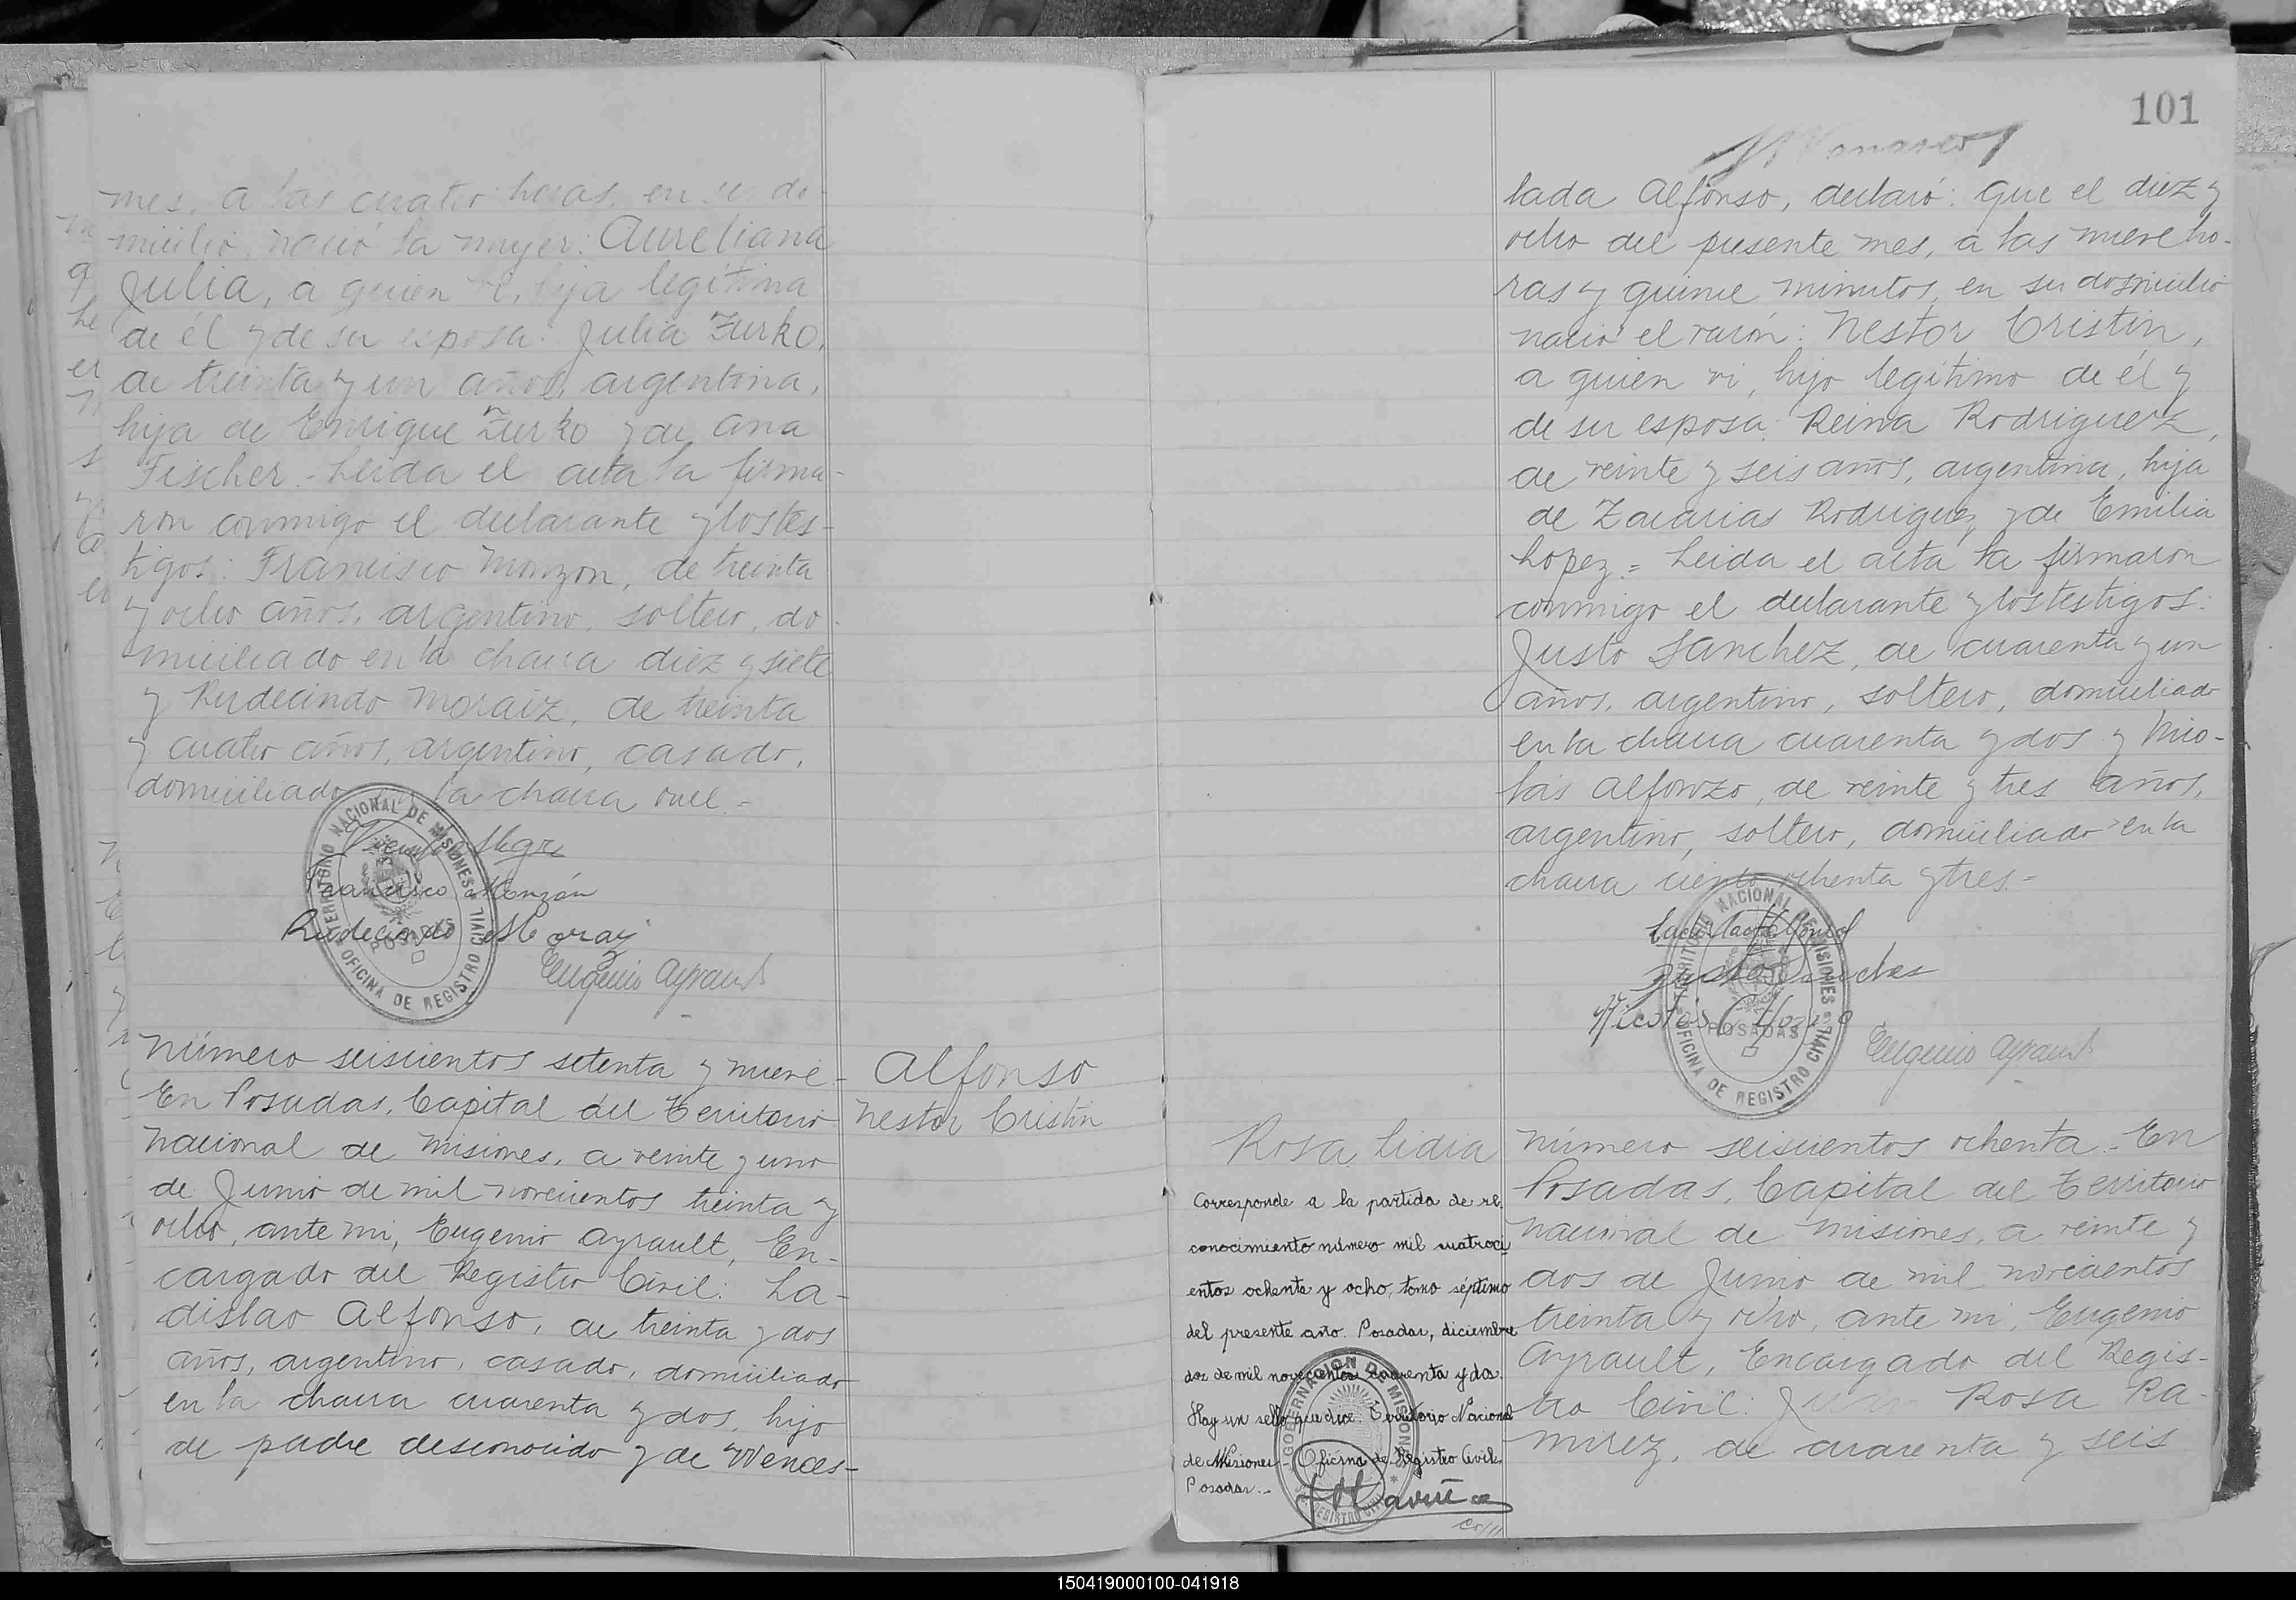 mes, a las cuatro horas, en su do-
micilio, nació la mujer: Aureliana
Julia, a quien vi, hija legítima
de él y de su esposa: Julia Zurko,
de treinta y un años, argentina,
hija de Enrique Zurko y de Ana
Fischer.- Leida el acta la firma-
ron conmigo el declarante y los tes-
tigos: Francisco Monzon, de treinta
y ocho años, argentino, soltero, do-
miciliado en la chacra diez y siete
y Rudecindo Moraiz, de treinta
y cuatro años, argentino, casado,
domiciliado la chacra once.-
TERRITORIO NACIONAL DE MISIONES
POSADAS
OFICINA DE REGISTRO CIVIL
Francisco Monzón
Rudecindo Moraiz
Eugenio Ayrault
Número seiscientos setenta y nueve-
En Posadas, Capital del Territorio
Nacional de Misiones, a veinte y uno
de Junio de mil novecientos treinta y
ocho, ante mi, Eugenio Ayrault, En-
cargado del Registro Civil: La-
dislao Alfonso, de treinta y dos
años, argentino, casado, domiciliado
en la chacra cuarenta y dos, hijo
de padre desconocido y de Wences-
Alfonso
Nestor Cristin
101
lada Alfonso, declaró: que el diez y
ocho del presente mes, a las nueve ho-
ras y quince minutos, en su domicilio
nació el varón: Nestor Cristin,
a quien vi, hijo legítimo de él y
de su esposa: Reina Rodriguez,
de veinte y seis años, argentina, hija
de Zacarias Rodriguez y de Emilia
Lopez.= Leida el acta la firmaron
conmigo el declarante y los testigos:
Justo Sanchez, de cuarenta y un
años, argentino, soltero, domiciliado
en la chacra cuarenta y dos y Nico-
lás Alfonzo, de veinte y tres años,
argentino, soltero, domiciliado en la
chacra ciento ochenta y tres.-
TERRITORIO NACIONAL DE MISIONES
POSADAS
OFICINA DE REGISTRO CIVIL
Justo Sanches
Nicolas Alfonzo
Eugenio Ayrault
Rosa Lidia
Corresponde a la partida de re-
conocimiento número mil cuatroci
entos ochenta y ocho, tomo séptimo
del presente año. Posadas, diciembre
dos de mil novecientos cuarenta y dos.
Hay un sello que dice: Territorio Nacional
de Misiones - Oficina de Registro Civil.
Posadas.-
GOBERNACION DE MISIONES
REGISTRO CIVIL
Número seiscientos ochenta.- En
Posadas, Capital del Territorio
Nacional de Misiones, a veinte y
dos de Junio de mil novecientos
treinta y ocho, ante mi, Eugenio
Ayrault, Encargado del Regis-
tro Civil: Juan Rosa Ra-
mirez, de cuarenta y seis
150419000100-041918